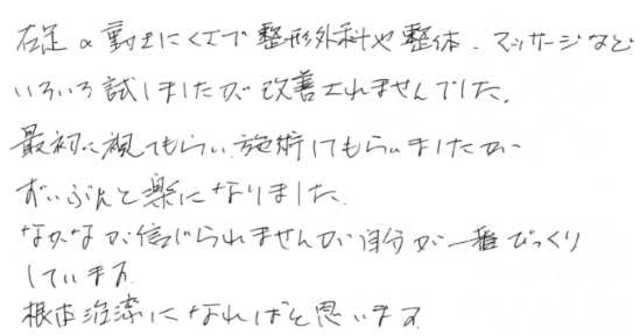 右足の動きにくさで整形外科や整体、マッサージなど
いろいろ試しましたが改善されませんでした。
最初に視てもらい、施術してもらいましたが
ずいぶんと楽になりました。
なかなか信じられませんが自分が一番びっくり
しています。
根本治療になればと思います